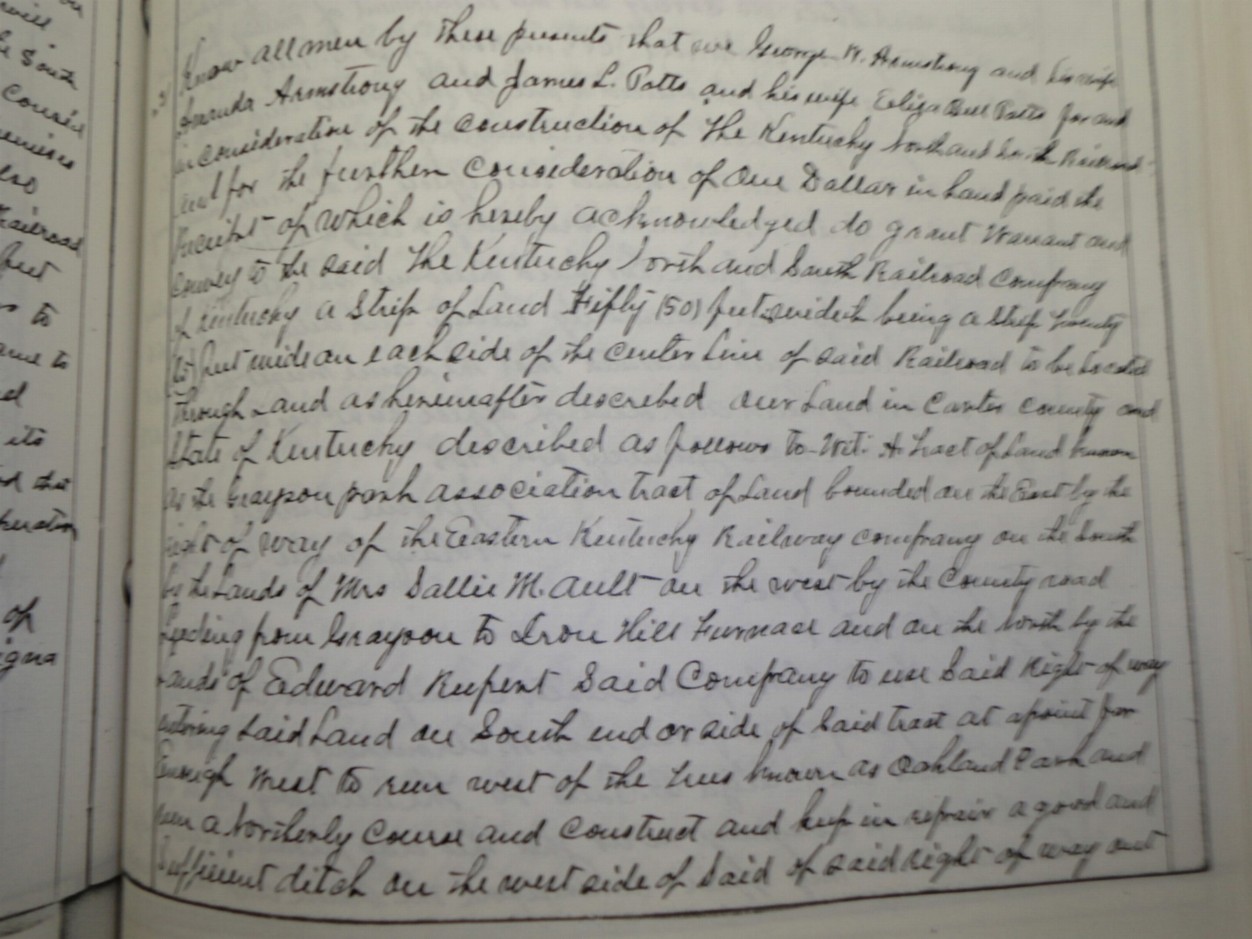 will
South
Railroad
feet
to
to
its
that
of
Know all men by these presents that we George W. Armstrong and his wife
Amanda Armstrong and James L. Potts and his wife Eliza Bell Potts for and
in consideration of the construction of The Kentucky North and South Railroad
and for the further consideration of One Dollar in hand paid the
receipt of which is hereby acknowledged do grant Warrant and
convey to the said The Kentucky North and South Railroad Company
of Kentucky a Strip of Land Fifty (50) feet in width being a strip twenty
(25) feet wide on each side of the center line of said Railroad to be located
through and as hereinafter described our Land in Carter County and
State of Kentucky described as follows to-Wit: A Tract of Land known
as the Grayson park association tract of Land bounded on the East by the
right of way of the Eastern Kentucky Railway company on the South
by the Lands of Mrs Sallie M. Ault on the west by the County road
Leading from Grayson to Iron Hill Furnace and on the North by the
Lands of Edward Rupert Said Company to use Said Right of way
entering Said Land on South end or side of Said tract at a point far
Enough West to run west of the trees known as Oakland Park and
run a Northerly Course and Construct and keep in repair a good and
Sufficient ditch on the west side of Said of said right of way out